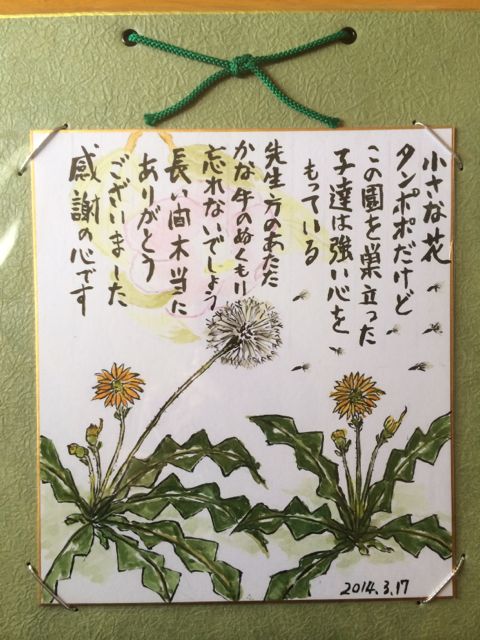 小さな花
タンポポだけど
この園を巣立った
子達は強い心を
もっている
先生方のあたた
かな手のぬくもり
忘れないでしょう
長い間本当に
ありがとう
ございました
感謝の心です
2014.3.17